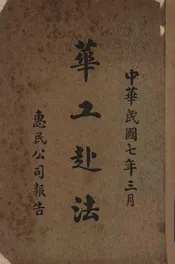 中華民國七年三月
華工赴法
惠民公司報告